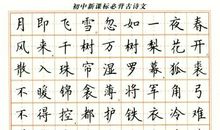 初中新课标必背古诗文
月即飞雪忽如一夜春
风来千树万树梨花开
散入珠帘湿罗幕狐裘
不暖锦衾薄将军角弓
不得控都护铁衣冷难